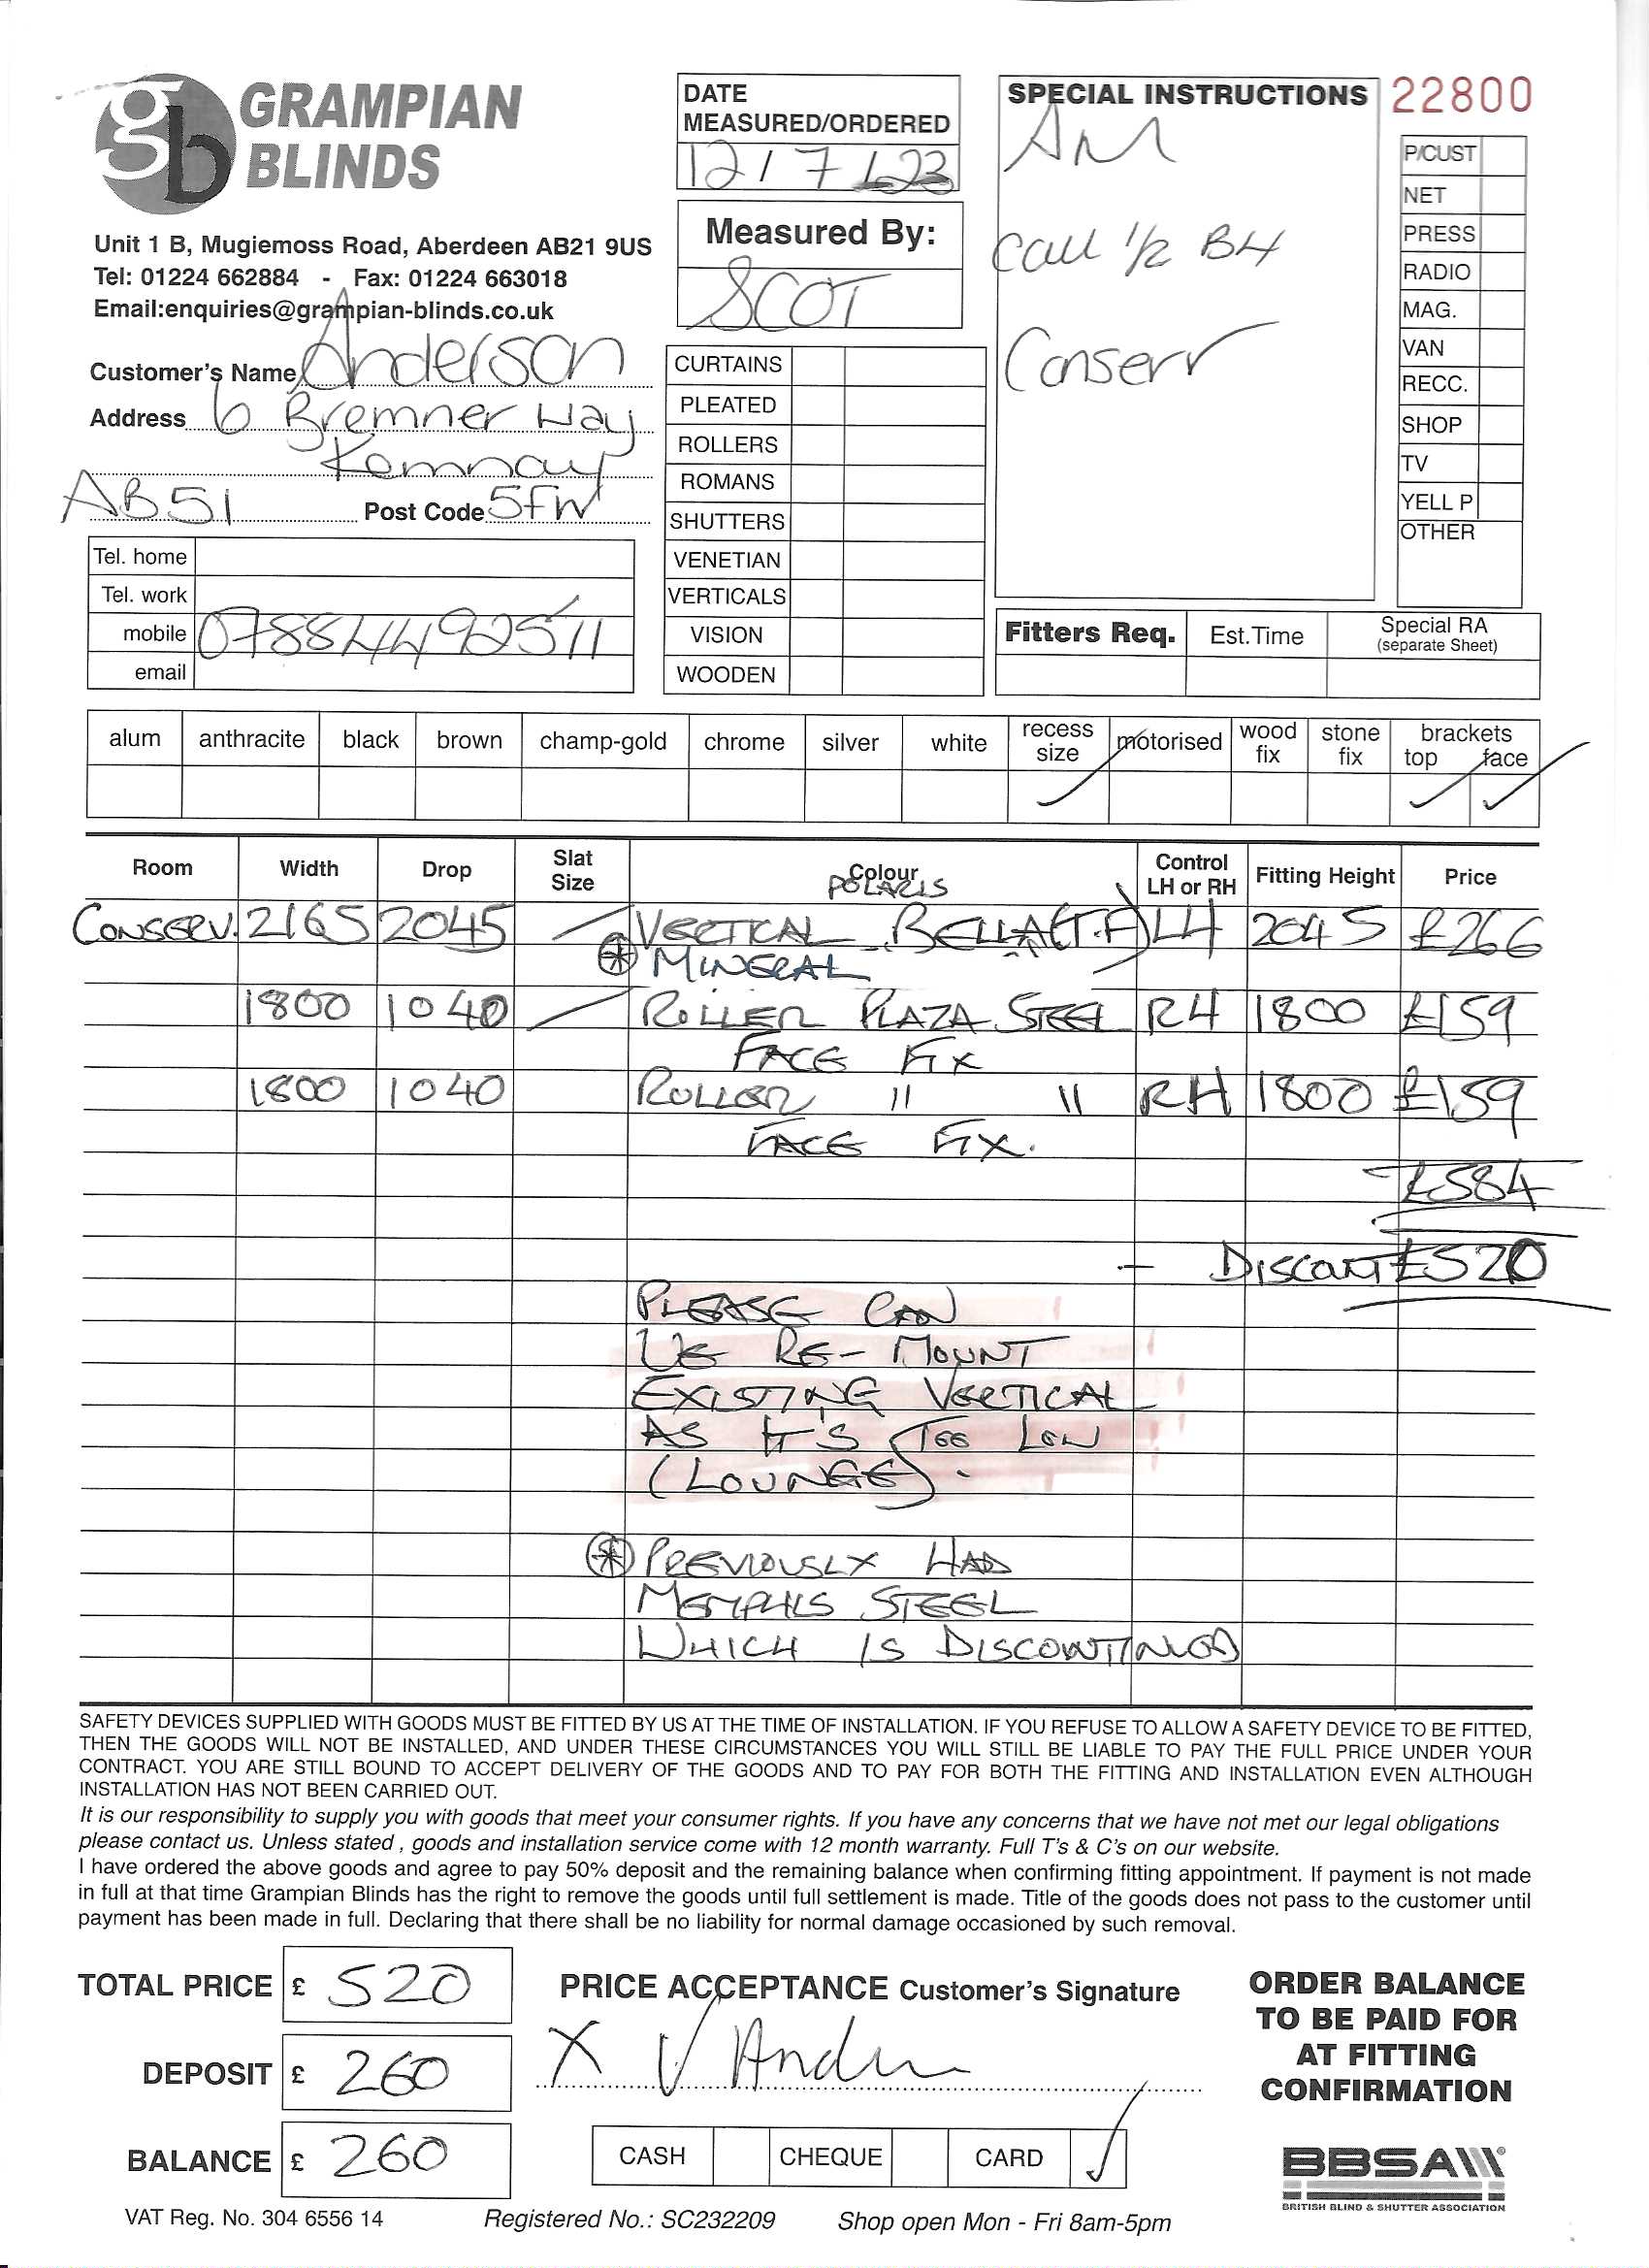 gb GRAMPIAN BLINDS
Unit 1 B, Mugiemoss Road, Aberdeen AB21 9US
Tel: 01224 662884 - Fax: 01224 663018
Email:enquiries@grampian-blinds.co.uk
Customer's Name Anderson
Address 6 Bremner Way
Kemnay
AB51 Post Code 5FW
Tel. home
Tel. work
mobile 07884492511
email
DATE
MEASURED/ORDERED
12/7/23
Measured By:
SCOT
CURTAINS
PLEATED
ROLLERS
ROMANS
SHUTTERS
VENETIAN
VERTICALS
VISION
WOODEN
SPECIAL INSTRUCTIONS
AM
Call 1/2 B4
Conserv
22800
P/CUST
NET
PRESS
RADIO
MAG.
VAN
RECC.
SHOP
TV
YELL P
OTHER
Fitters Req. Est.Time Special RA
(separate Sheet)
alum anthracite black brown champ-gold chrome silver white recess size motorised wood fix stone fix brackets top face
Room Width Drop Slat Size Colour Control LH or RH Fitting Height Price
POLARIS
CONSERV. 2165 2045 VERTICAL BELLA (T.F) LH 2045 £266
MINERAL
1800 1040 ROLLER PLAZA STEEL RH 1800 £159
FACE FIX
1800 1040 ROLLER " " RH 1800 £159
FACE FIX.
£584
- DISCOUNT £520
PLEASE CAN
WE RE-MOUNT
EXISTING VERTICAL
AS IT'S TOO LOW
(LOUNGE).
* PREVIOUSLY HAD
MEMPHIS STEEL
WHICH IS DISCONTINUED
SAFETY DEVICES SUPPLIED WITH GOODS MUST BE FITTED BY US AT THE TIME OF INSTALLATION. IF YOU REFUSE TO ALLOW A SAFETY DEVICE TO BE FITTED,
THEN THE GOODS WILL NOT BE INSTALLED, AND UNDER THESE CIRCUMSTANCES YOU WILL STILL BE LIABLE TO PAY THE FULL PRICE UNDER YOUR
CONTRACT. YOU ARE STILL BOUND TO ACCEPT DELIVERY OF THE GOODS AND TO PAY FOR BOTH THE FITTING AND INSTALLATION EVEN ALTHOUGH
INSTALLATION HAS NOT BEEN CARRIED OUT.
It is our responsibility to supply you with goods that meet your consumer rights. If you have any concerns that we have not met our legal obligations
please contact us. Unless stated , goods and installation service come with 12 month warranty. Full T's & C's on our website.
I have ordered the above goods and agree to pay 50% deposit and the remaining balance when confirming fitting appointment. If payment is not made
in full at that time Grampian Blinds has the right to remove the goods until full settlement is made. Title of the goods does not pass to the customer until
payment has been made in full. Declaring that there shall be no liability for normal damage occasioned by such removal.
TOTAL PRICE £ 520
DEPOSIT £ 260
BALANCE £ 260
PRICE ACCEPTANCE Customer's Signature
X V Ander
CASH CHEQUE CARD
ORDER BALANCE
TO BE PAID FOR
AT FITTING
CONFIRMATION
BBSA
BRITISH BLIND & SHUTTER ASSOCIATION
VAT Reg. No. 304 6556 14 Registered No.: SC232209 Shop open Mon - Fri 8am-5pm